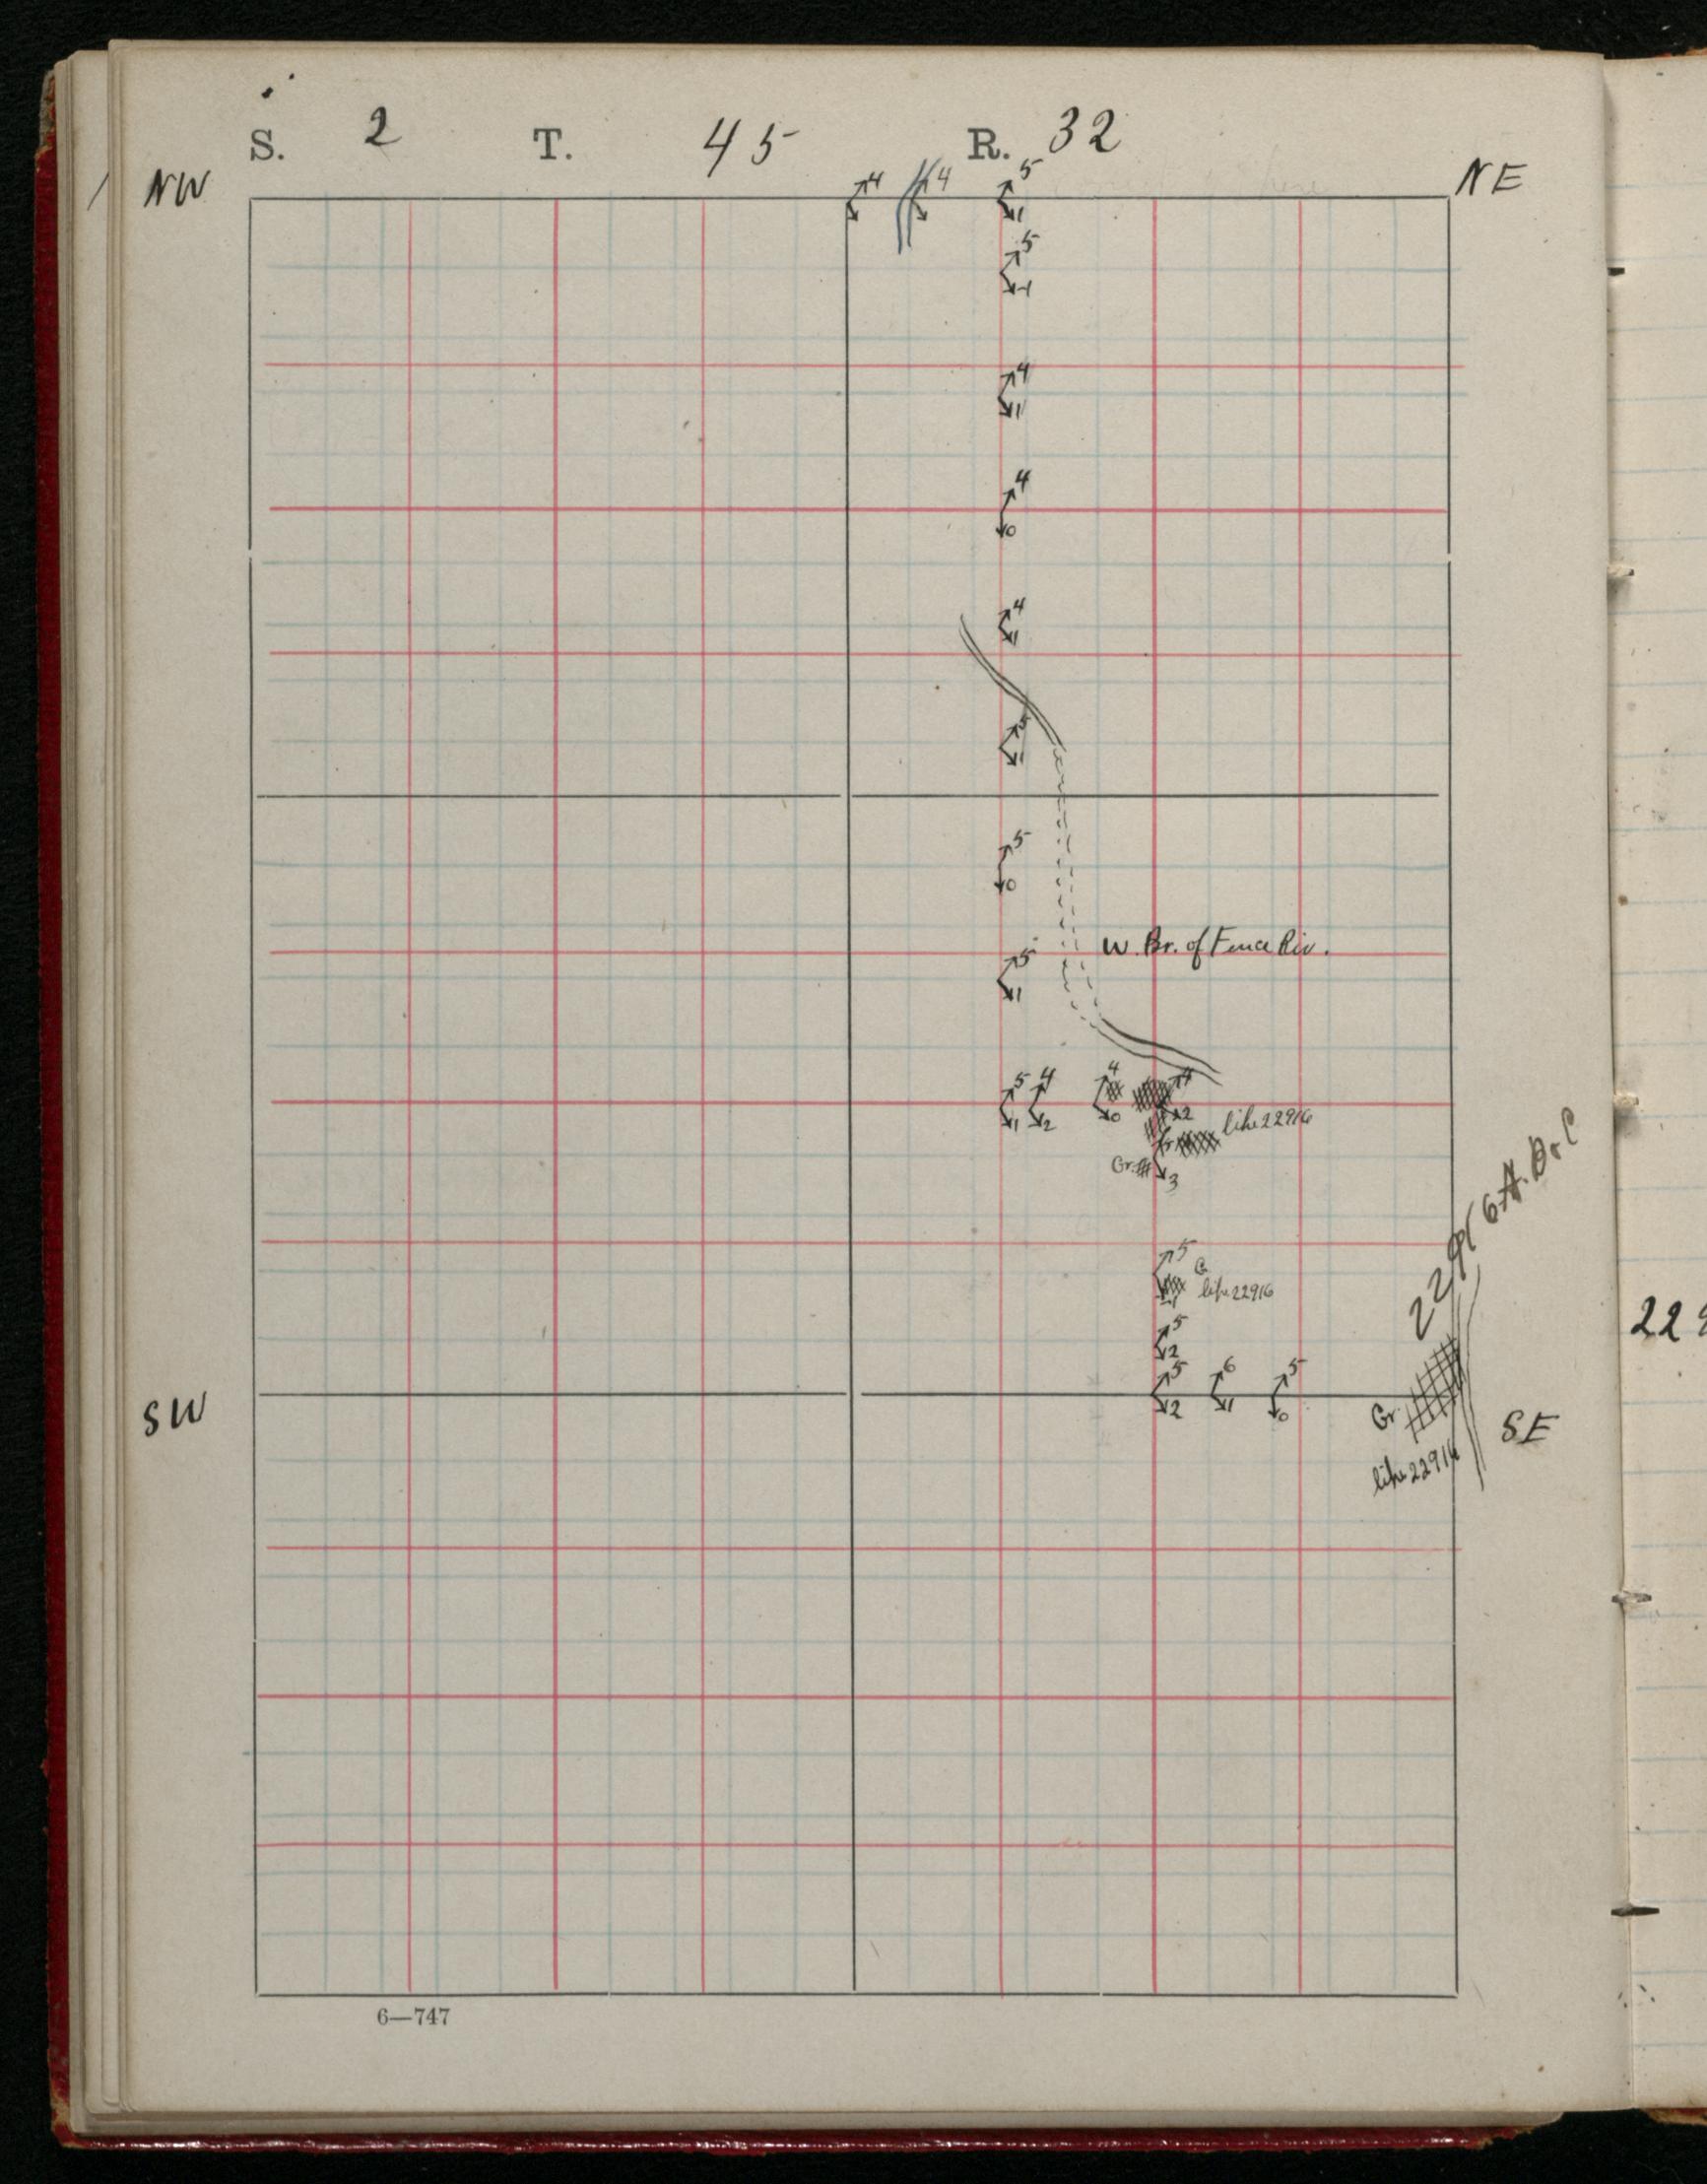 S. 2 T. 45 R. 32
NW NE
4 4 5
1
5
1
4
1
4
0
4
1
5
1
5
0
W. Br. of Fence Riv.
5
1
5 4 4 4
1 2 0 2
like 22916
Gr. 3
5 G
like 22916
1
5
2
5 6 5
2 1 0
22916 A. B. C
22
Gr.
SW SE
like 22916
6—747